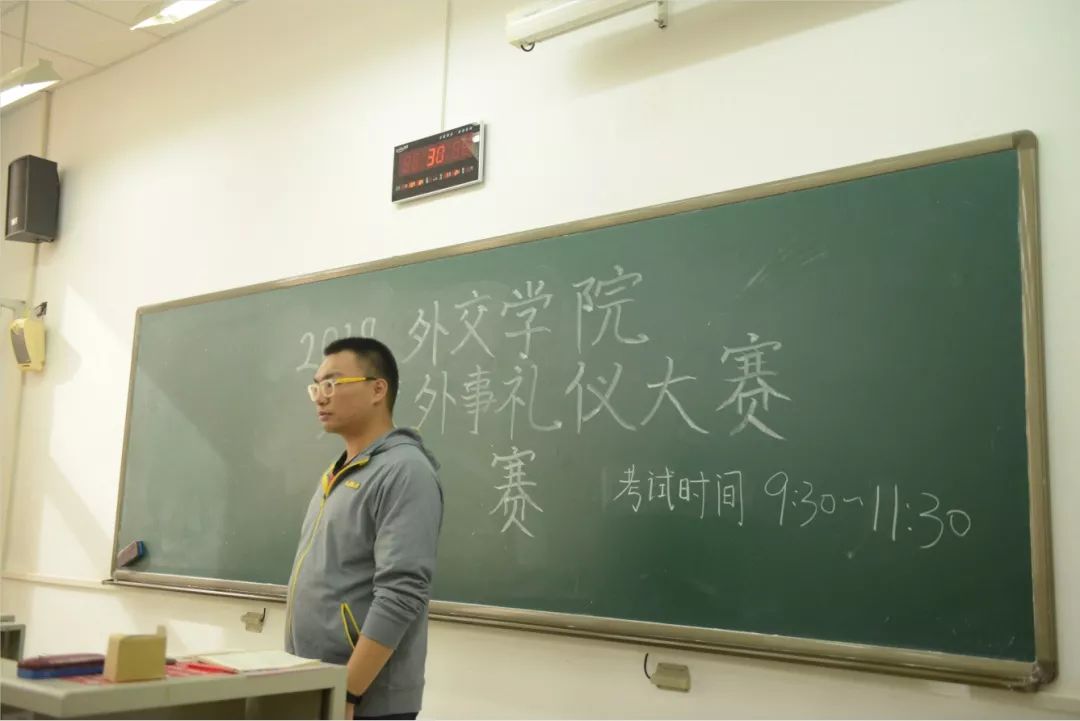 外交学院
外事礼仪大赛
赛
考试时间 9:30~11:30
30